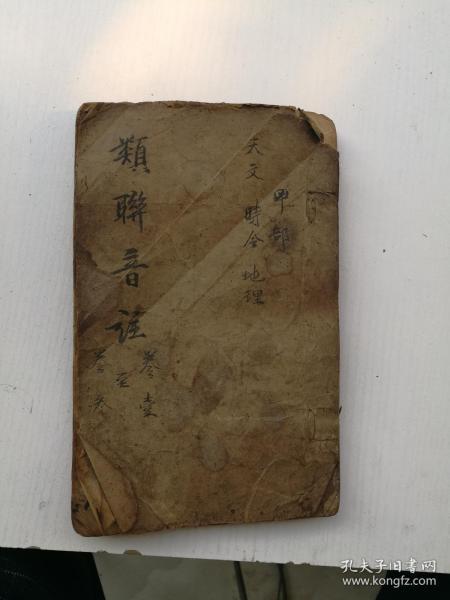 甲部
天文 時令 地理
類聯音註
卷壹
至
卷叁
孔夫子旧书网
www.kongfz.com